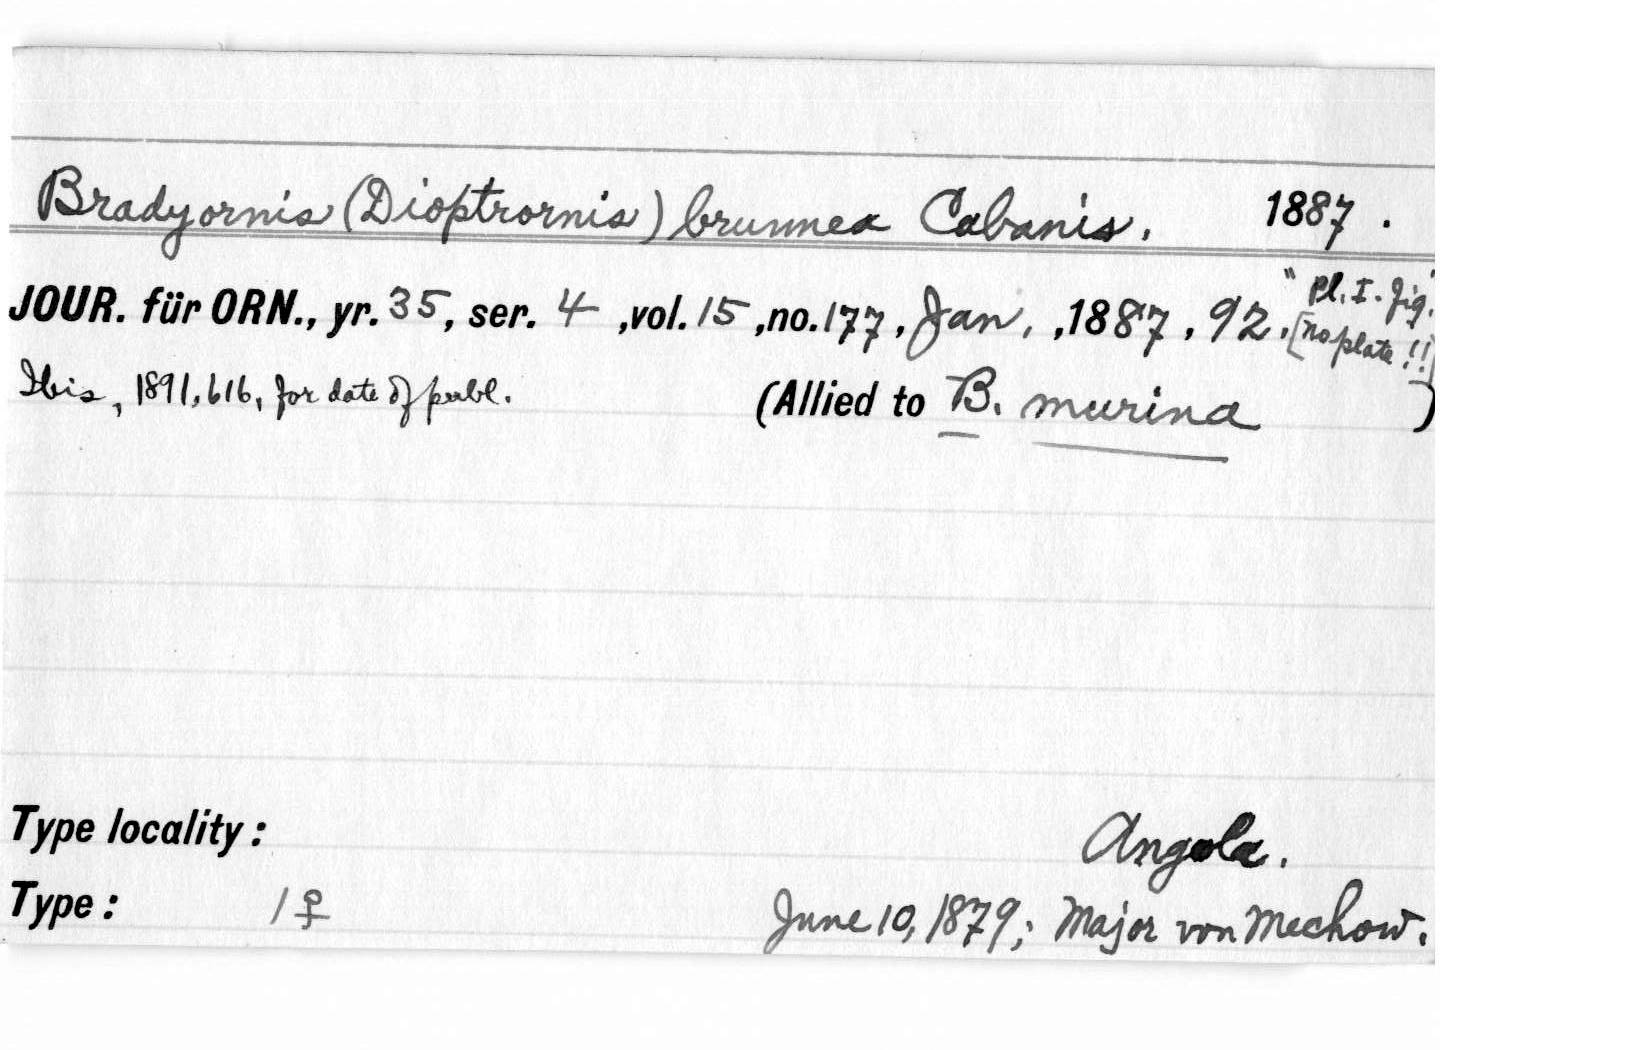 Bradyornis (Dioptrornis) brunnea Cabanis. 1887.
JOUR. für ORN., yr. 35, ser. 4 ,vol. 15 ,no. 177, Jan. ,1887, 92. "Pl. I. fig."
[no plate!!]
Ibis, 1891, 616, for date of publ. (Allied to B. murina )
Type locality: Angola.
Type: 1 ♀ June 10, 1879; Major von Mechow.